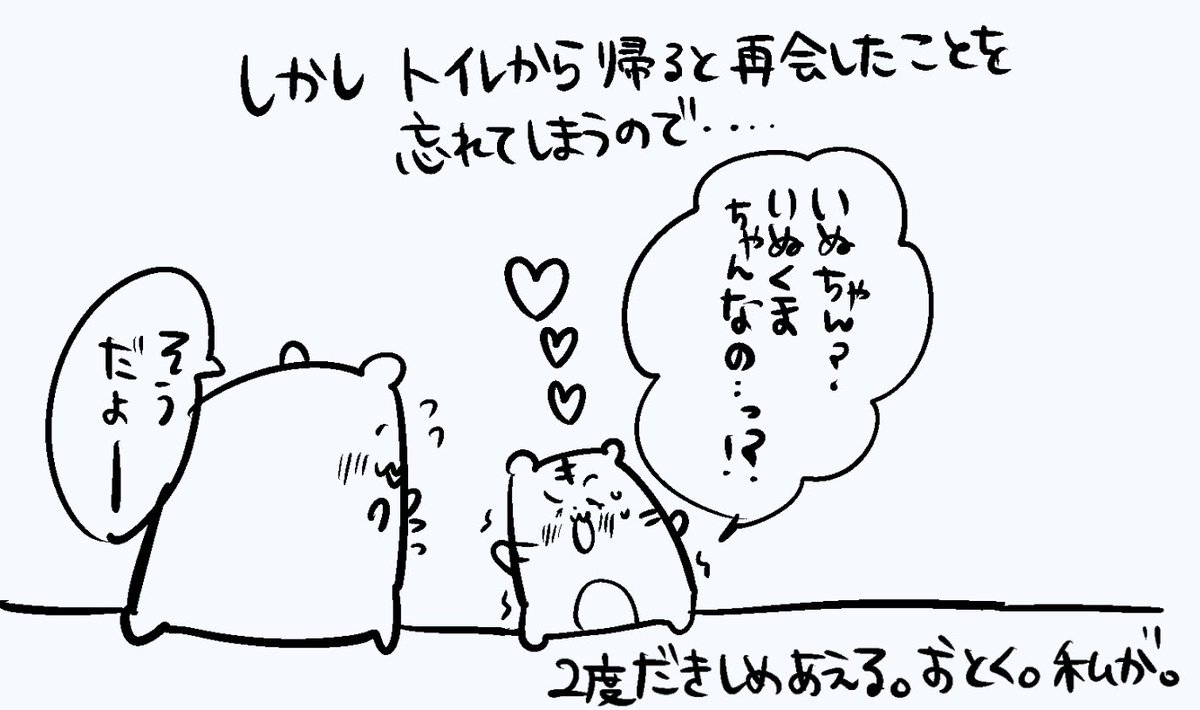 しかし トイレから帰ると再会したことを
忘れてしまうので‥‥
いぬちゃん?
いぬくま
ちゃんなの…っ!?
そう
だよー
2度だきしめあえる。おとく。私が。